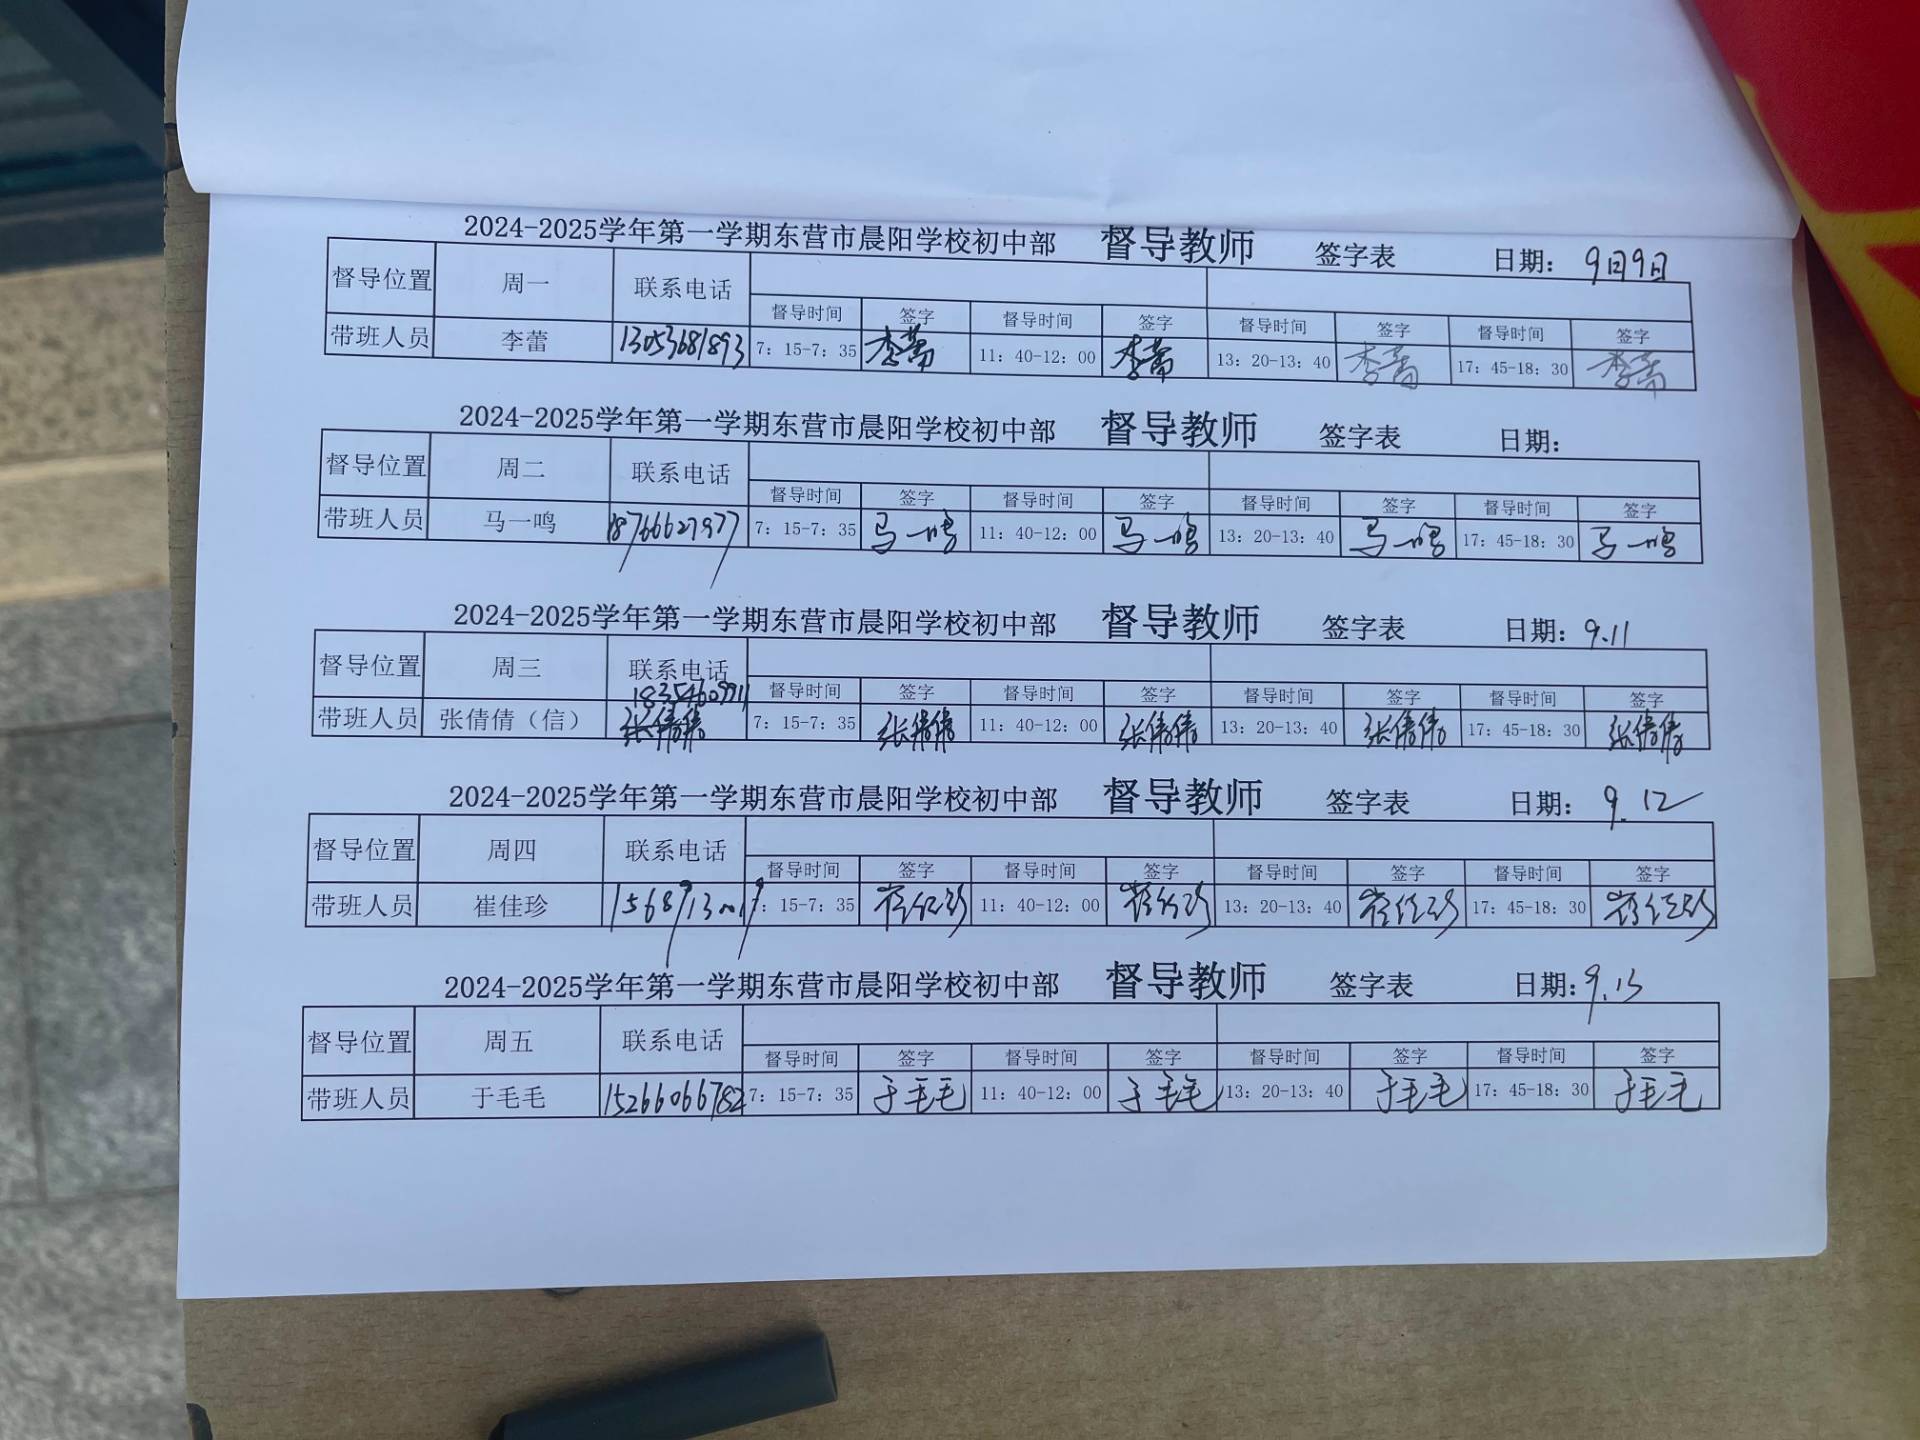 2024-2025学年第一学期东营市晨阳学校初中部 督导教师 签字表 日期: 9月9日
督导位置 周一 联系电话
督导时间 签字 督导时间 签字 督导时间 签字 督导时间 签字
带班人员 李蕾 13053681893 7:15-7:35 李蕾 11:40-12:00 李蕾 13:20-13:40 李蕾 17:45-18:30 李蕾
2024-2025学年第一学期东营市晨阳学校初中部 督导教师 签字表 日期:
督导位置 周二 联系电话
督导时间 签字 督导时间 签字 督导时间 签字 督导时间 签字
带班人员 马一鸣 18766627977 7:15-7:35 马一鸣 11:40-12:00 马一鸣 13:20-13:40 马一鸣 17:45-18:30 马一鸣
2024-2025学年第一学期东营市晨阳学校初中部 督导教师 签字表 日期: 9.11
督导位置 周三 联系电话
督导时间 签字 督导时间 签字 督导时间 签字 督导时间 签字
带班人员 张倩倩（信） 张倩倩 7:15-7:35 张倩倩 11:40-12:00 张倩倩 13:20-13:40 张倩倩 17:45-18:30 张倩倩
2024-2025学年第一学期东营市晨阳学校初中部 督导教师 签字表 日期: 9.12
督导位置 周四 联系电话
督导时间 签字 督导时间 签字 督导时间 签字 督导时间 签字
带班人员 崔佳珍 7:15-7:35 崔佳珍 11:40-12:00 崔佳珍 13:20-13:40 崔佳珍 17:45-18:30 崔佳珍
2024-2025学年第一学期东营市晨阳学校初中部 督导教师 签字表 日期: 9.13
督导位置 周五 联系电话
督导时间 签字 督导时间 签字 督导时间 签字 督导时间 签字
带班人员 于毛毛 15266066782 7:15-7:35 于毛毛 11:40-12:00 于毛毛 13:20-13:40 于毛毛 17:45-18:30 于毛毛